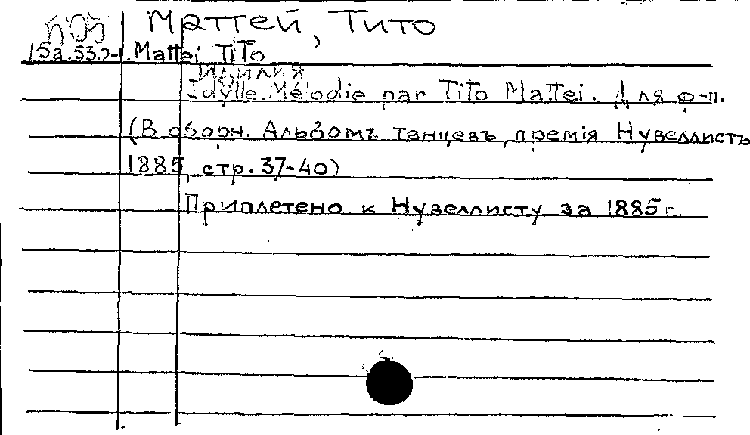 Маттей, Тито
Mattei Tito
Идиллия
Idylle. Mélodie par Tito Mattei. Для ф-п.
(В сборн. Альбомъ танцевъ, премiя Нувеллистъ
1885, стр. 37-40)
Приплетено к Нувеллисту за 1885 г.